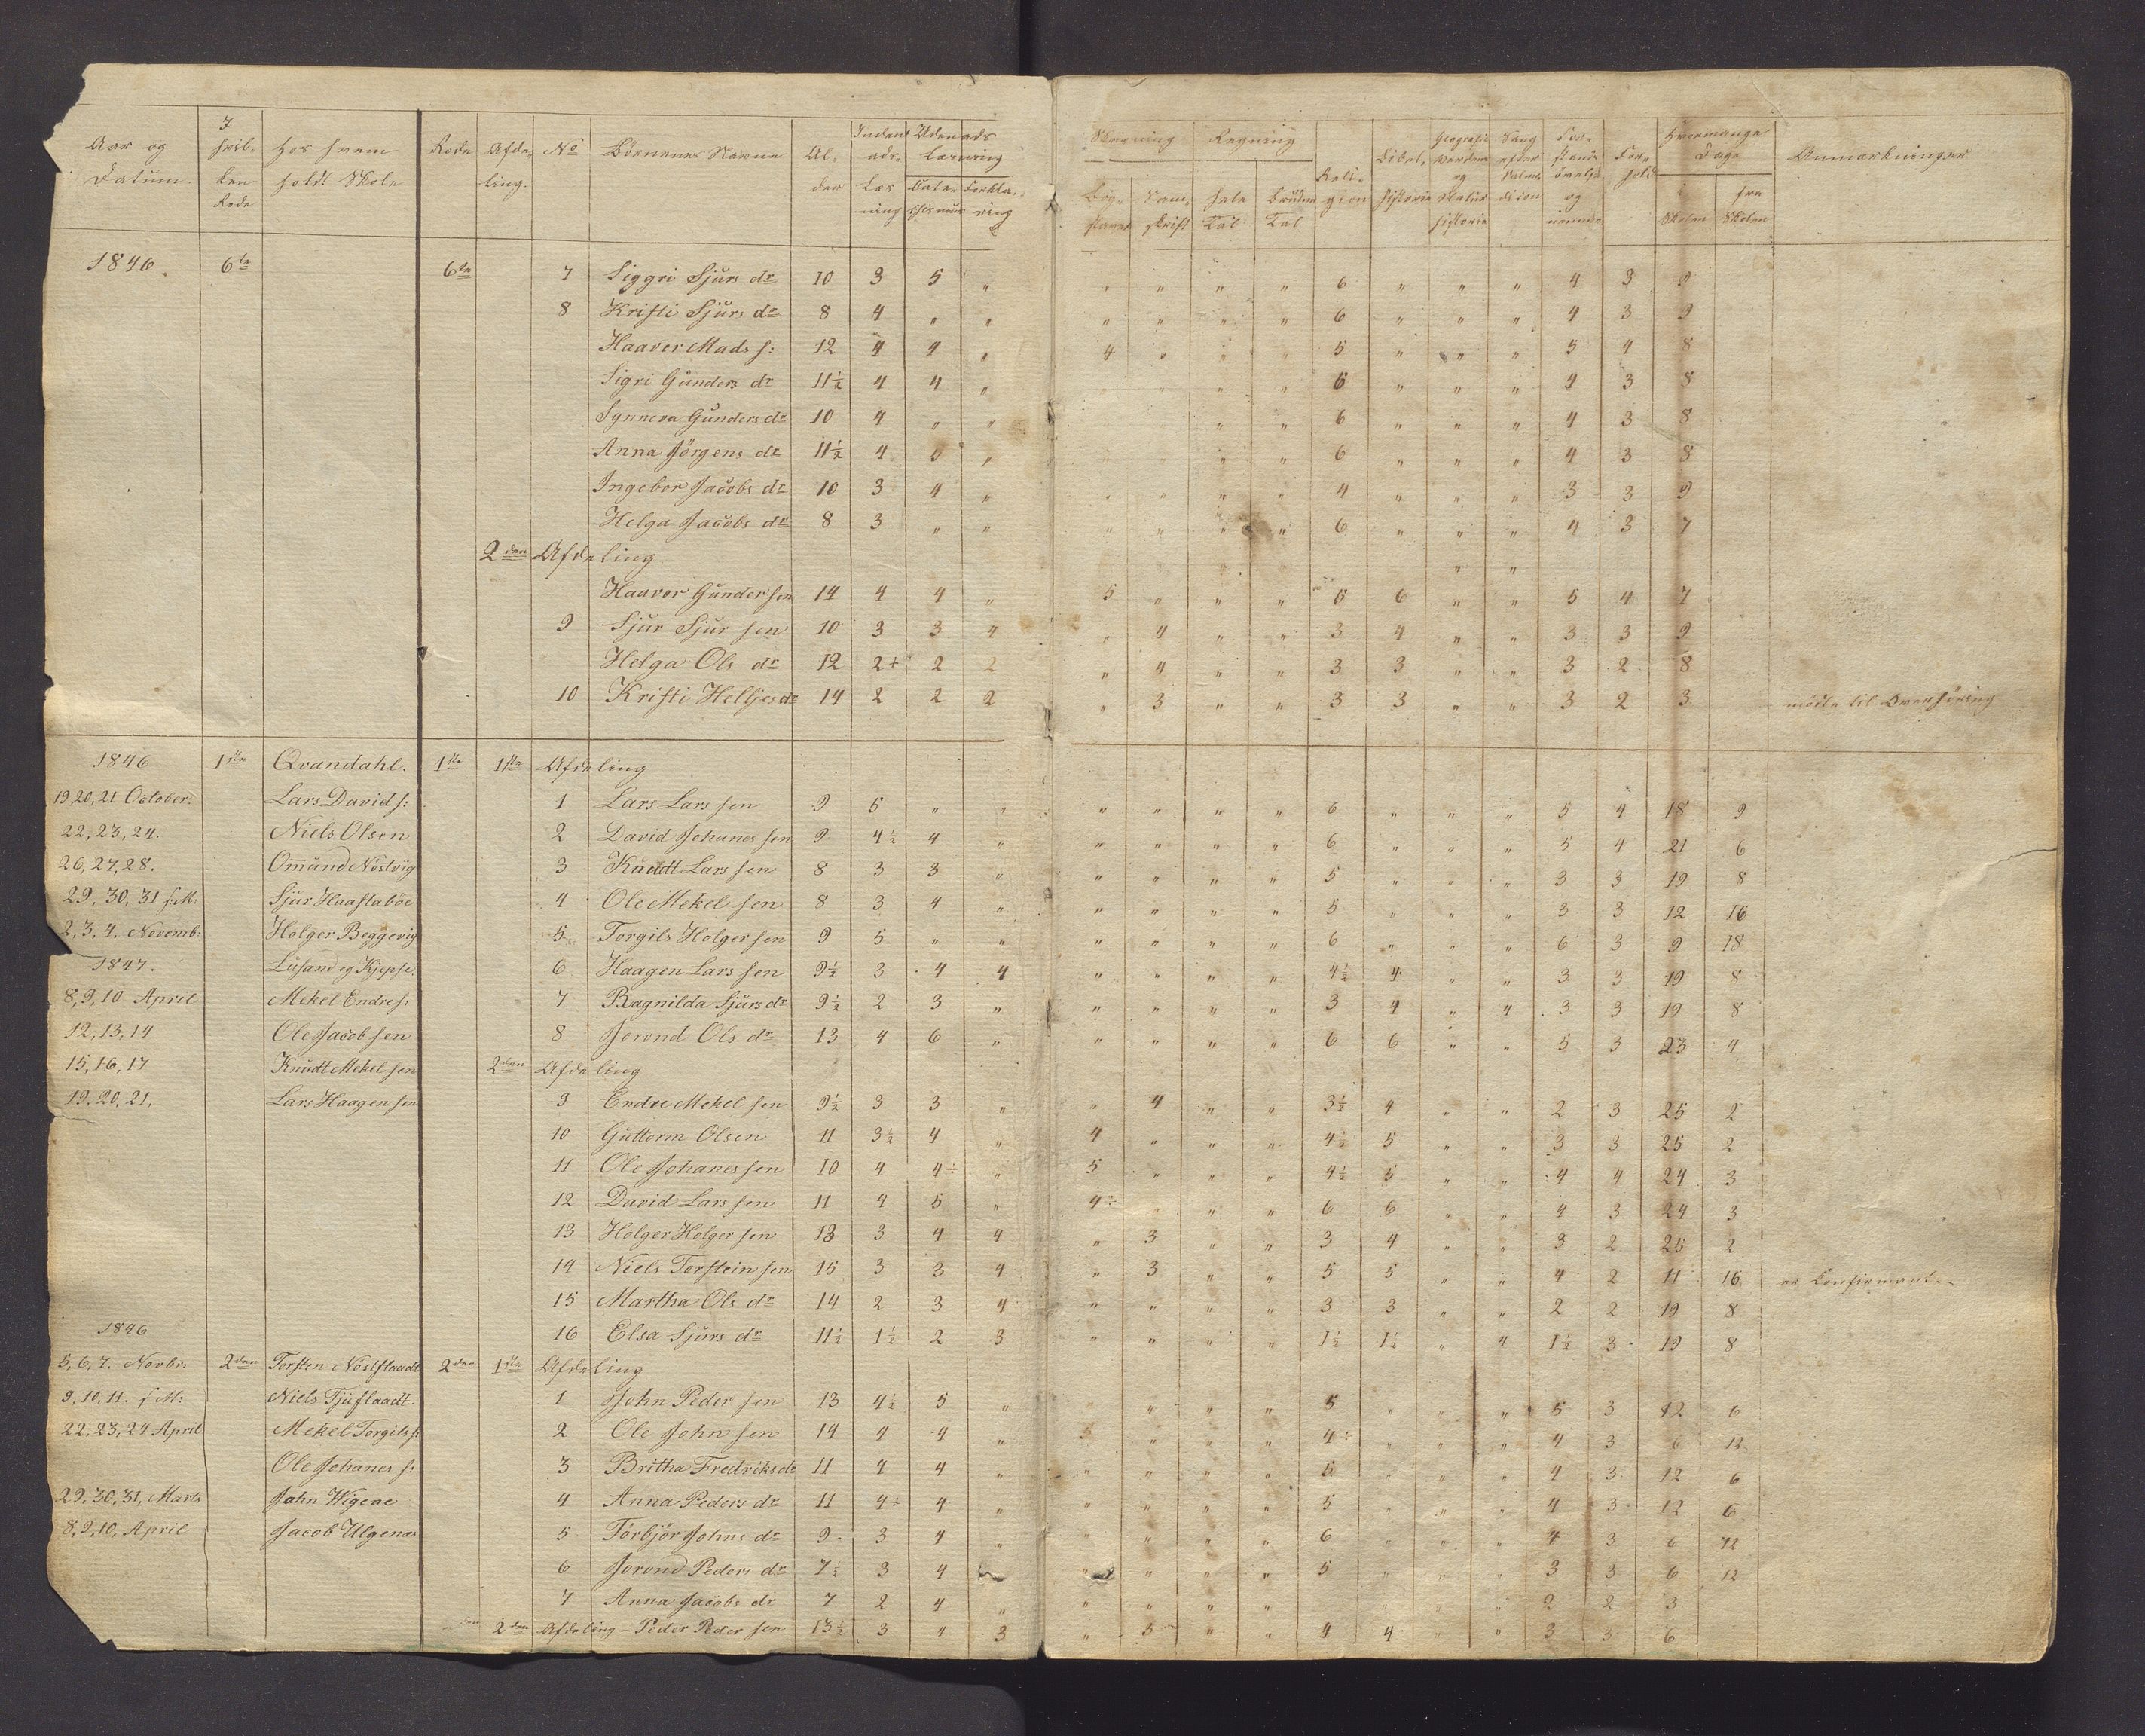 Aar og Datum. | I hvilken Rode | hos hvem holdt Skole | Rode | Afdeling. | No | Börnenes Navne | Alder | Indenads Læsning | Udenads Læsning Catechismus | Forklaring | Skrivning Bogstaver | Samskrift | Regning hele Tal | Brudne Tal | Religion | Bibelhistorie | Geografie Verdens og Natur historie | Sang efter Psalmodicon | Forstands övelse og nemme | Forhold | Hvormange Dage i Skolen | fra Skolen | Anmærkninger
1846. 6te 6te 7 Siggri Sjurs dr 10 3 5 „ „ „ „ „ 6 „ „ „ 4 3 9
8 Kristi Sjurs dr 8 4 „ „ „ „ „ „ 6 „ „ „ 4 3 9
Haaver Mads s: 12 4 4 „ 4 „ „ „ 5 „ „ „ 5 4 8
Sigri Gunders dr 11½ 4 4 „ „ „ „ „ 6 „ „ „ 4 3 8
Synneva Gunders dr 10 4 „ „ „ „ 6 „ „ „ 4 3 8
Anna Jörgens dr 11½ 4 „ „ „ „ „ 6 „ „ „ 4 3 8
Ingebor Jacobs dr 10 3 4 „ „ „ „ „ 4 „ „ „ 3 3 9
Helga Jacobs dr 8 3 „ „ „ „ „ „ 6 „ „ „ 4 3 7
2den Afdeling „ „
Haaver Gundersen 14 4 4 „ 5 „ „ „ 6 6 „ „ 5 4 7
9 Sjur Sjursen 10 3 3 4 „ 4 „ „ 3 4 „ „ 3 3 9
Helga Ols dr 12 2+ 2 2 „ 4 „ „ 3 3 „ „ 3 2 8
10 Kristi Helljes dr 14 2 2 2 „ 3 „ „ 3 3 „ „ 3 2 3 mödte til Overhöring
1846 1ste Qvandahl. 1ste 1ste Afdeling
19,20,21 October. Lars Davids: 1 Lars Larssen 9 5 „ „ „ „ „ „ 6 „ „ „ 5 4 18 9
22,23,24. Niels Olsen 2 David Johanessen 9 4½ 4 „ „ „ „ „ 6 „ „ „ 5 4 21 6
26,27,28. Omund Nöstvig 3 Knudt Larssen 8 3 3 „ „ „ „ „ 5 „ „ „ 3 3 19 8
29,30,31 s:M: Sjur Haastaböe 4 Ole Mekelsen 8 3 4 „ „ „ „ „ 5 „ „ „ 3 3 12 16
2,3,4. Novemb: Holger Beggevig 5 Torgils Holgersen 9 5 „ „ „ „ „ „ 6 „ „ „ 6 3 9 18
1847. Lusand og Kjepse. 6 Haagen Larssen 9½ 3 4 4 „ „ „ „ 4½ 4 „ „ 3 3 19 8
8,9,10 April Mekel Endres: 7 Ragnilda Sjurs dr 9½ 2 3 „ „ „ „ „ 3 4 „ 4 3 3 19 8
12,13,14 Ole Jacobsen 8 Jorond Ols dr 13 4 6 „ „ „ „ „ 6 6 „ „ 5 3 23 4
15,16,17 Knudt Mekelsen 2den Afdeling
19,20,21. Lars Haagensen 9 Endre Mekelsen 9½ 3 3 „ „ 4 „ „ 3½ 4 „ „ 2 3 25 2
10 Guttorm Olsen 11 3½ 4 „ 4 „ „ „ 4½ 5 „ „ 3 3 25 2
11 Ole Johanessen 10 4 4÷ „ 5 „ „ „ 4½ 5 „ „ 4 4 24 3
12 David Larssen 11 4 5 „ 4÷ „ „ „ 6 6 „ „ 4 3 24 3
13 Holger Holgersen 13 3 4 4 „ 3 „ „ 3 4 „ „ 3 2 25 2
14 Niels Torsteinsen 15 3 3 4 „ 3 „ „ 5 5 „ „ 4 2 11 16 er Confirmant.
15 Martha Ols dr 14 2 3 4 „ „ „ „ 3 3 „ „ 2 2 19 8
1846 16 Elsa Sjurs dr 11½ 1½ 2 3 „ „ „ „ 1½ 1½ „ 4 1½ 3 19 8
5,6,7. Novbr: 2den Torsten Nöslstaadt 2den 1ste Afdeling
9,10,11. s:M: Niels Tjustaadt. 1 John Pedersen 13 4½ 5 „ „ „ „ 5 „ „ „ 5 3 12 6
22,23,24 April Mekel Torgils s: 2 Ole Johnsen 14 4 4 „ 5 „ „ „ 4÷ „ „ „ 4 3 6 12
Ole Johanes s: 3 Britha Fredriks dr 11 4 4 „ „ „ „ „ 5 „ „ „ 4 3 12 6
29,30,31, Marts John Wigene 4 Anna Peders dr 11 4÷ 4 „ „ „ „ „ 5 „ „ „ 4 3 12 6
8,9,10, April Jacob Ulgenæs 5 Törbjör Johns dr 9 3 4 „ „ „ „ „ 6 „ „ „ 4 3 6 12
6 Jorond Peders dr 7½ 3 4 „ „ „ „ 5 „ „ „ 3 3 6 12
7 Anna Jacobs dr 7 2 4 „ „ „ „ „ „ „ „ 2 2 3
2den Afdeling – Peder Pedersen 13½ 3 4 3 „ 3 „ „ 4 4 „ „ 3 3 6